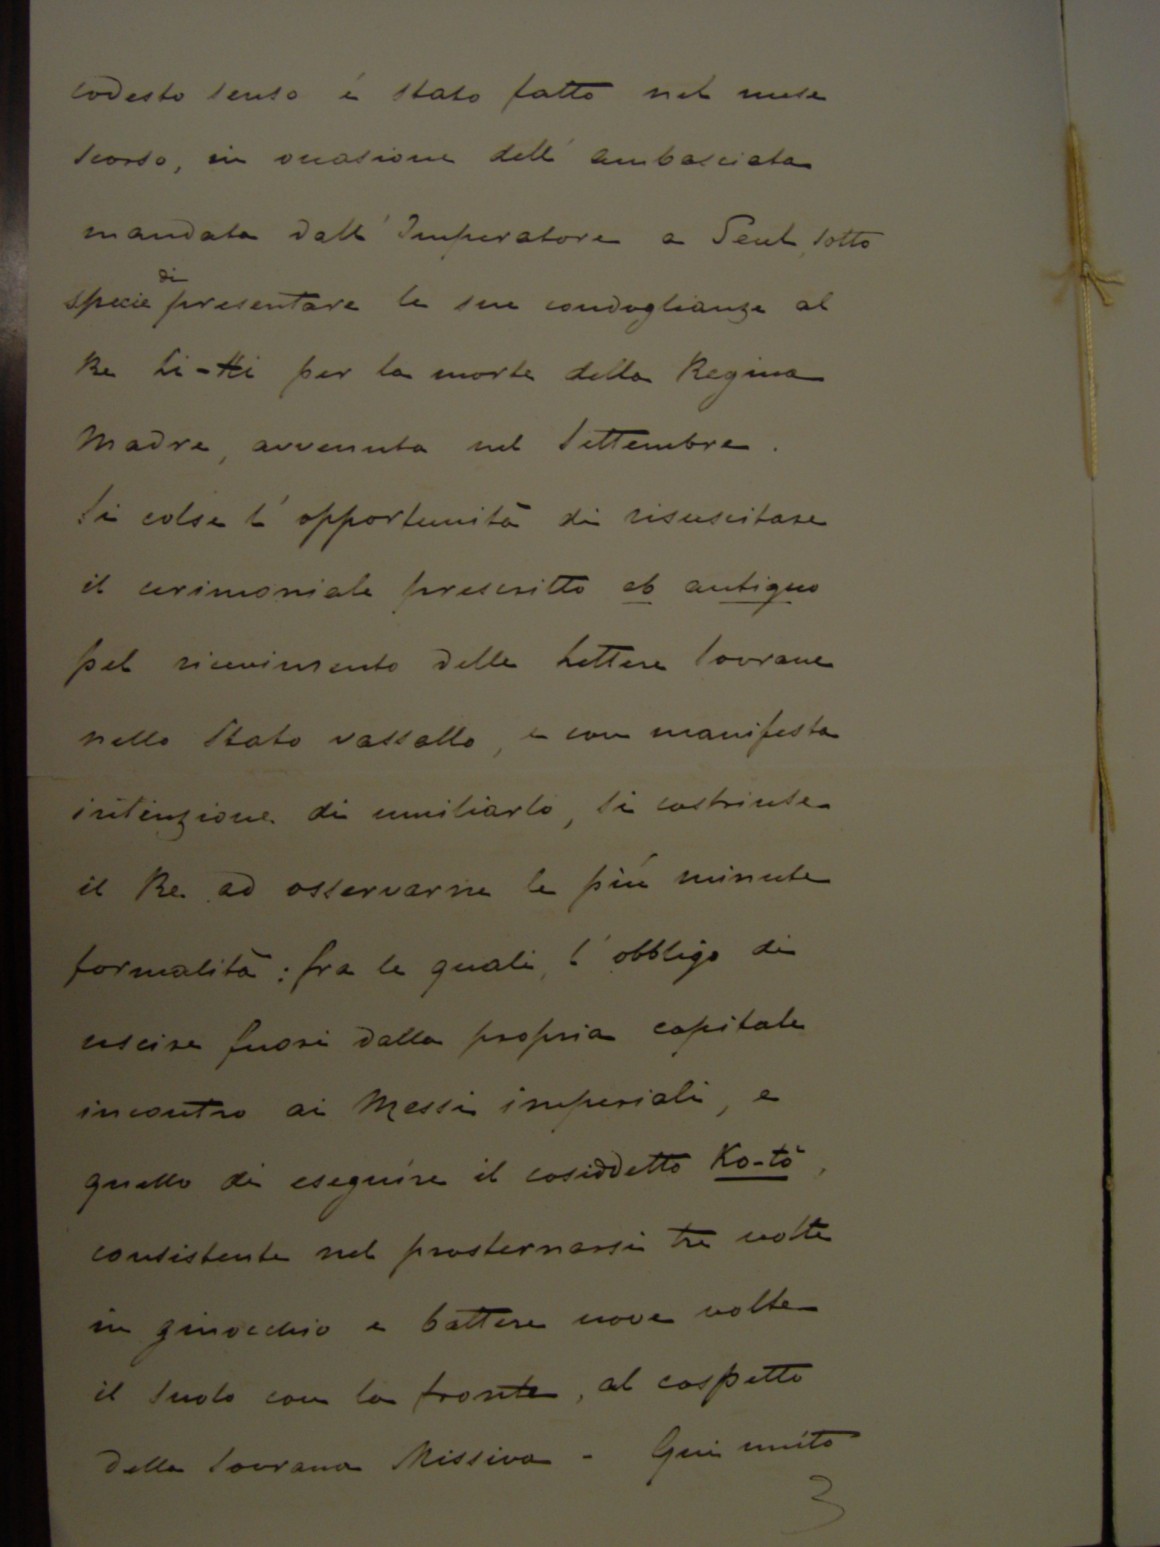 codesto senso é stato fatto nel mese
scorso, in occasione dell'ambasciata
mandata dall'Imperatore a Seul, sotto
specie di presentare le sue condoglianze al
Re Li-Hi per la morte della Regina
Madre, avvenuta nel Settembre.
Si colse l'opportunità di risuscitare
il cerimoniale prescritto ab antiquo
pel ricevimento delle Lettere Sovrane
nello Stato vassallo, e con manifesta
intenzione di umiliarlo, si costrinse
il Re ad osservarne le più minute
formalità: fra le quali, l'obbligo di
uscire fuori dalla propria capitale
incontro ai Messi imperiali, e
quello di eseguire il cosiddetto Ko-tò,
consistente nel prosternarsi tre volte
in ginocchio e battere nove volte
il suolo con la fronte, al cospetto
della Sovrana Missiva - Qui unito
3